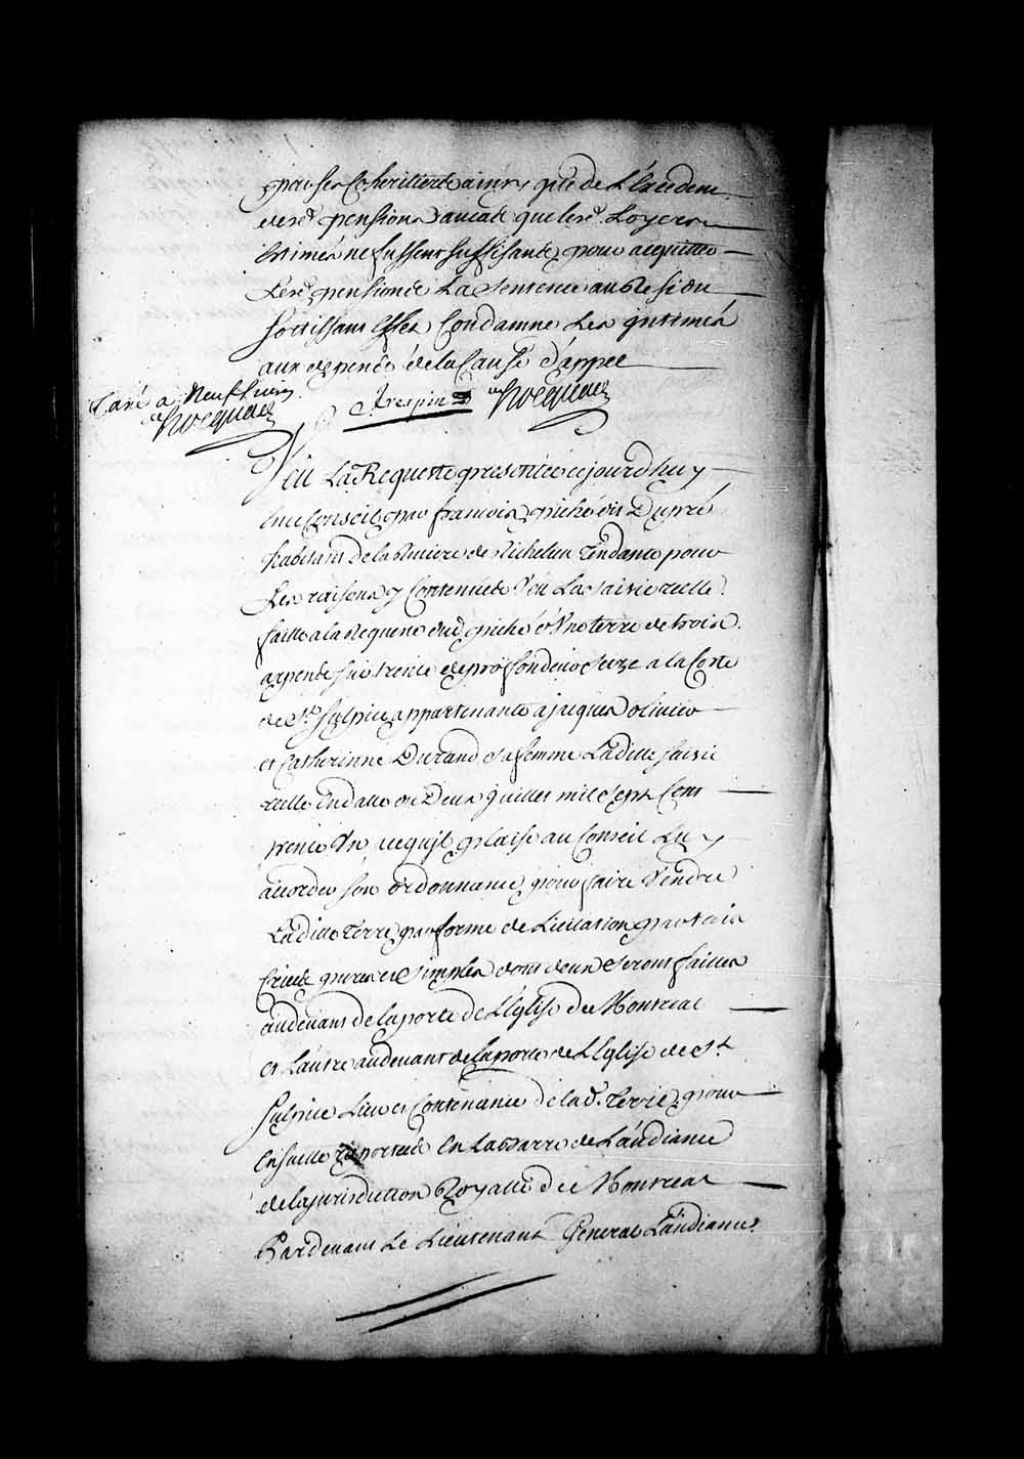 par ses Coheritiers ainsy que de L'excedent
desd. pensions au cas que lesd. Loyers
Estimés ne fussent suffisants pour acquitter
Lesd. pensions La Sentence au Residu
sortissant Effet Condamne Les Intimés
aux depends de la Cause d'appel
Taxé a Neuf livres
Hocquart
Crespin
Hocquart
Veu La Requeste presentée cejourdhuy
En ce Conseil par francois piché dit Dupré
habitant de la Riviere de Richelieu Tendante pour
Les raisons y Contenües Veu La saisie reelle
faitte a la Requeste dud. piché d'Une terre de trois
arpents sur trente de profondeur size a la Coste
de St. Sulpice appartenante a jacques olivier
et Catherinne Durand sa femme Ladite saisie
reelle En datte du Deux juillet mil Sept Cent
trente Un ce quil plaise au Conseil Luy
accorder son ordonnance pour faire Vendre
Laditte terre par forme de Licitation par trois
Criées pures et simples dont deux seront faittes
audevant de la porte de L'Eglise de Montreal
et L'autre audevant de la porte de L'Eglise de St.
Sulpice Lieu et Contenance de lad. Terre pour
Ensuitte raportée En La barre de L'audiance
de la jurisdiction Royalle de Montreal
Pardevant Le Lieutenant General L'audiance